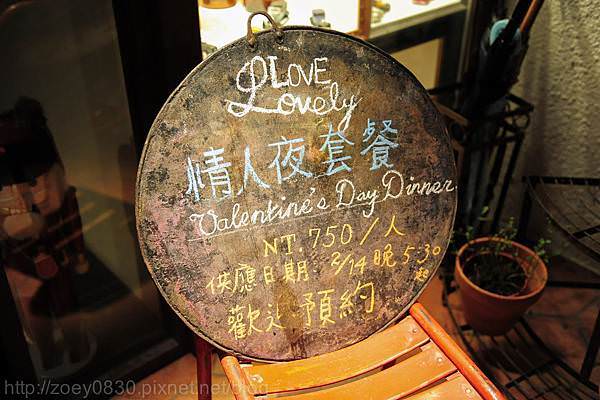 LOVE
Lovely
情人夜套餐
Valentine's Day Dinner.
NT. 750/人
供應日期: 2/14 晚 5:30
起
歡迎預約
http://zoey0830.pixnet.net/blog